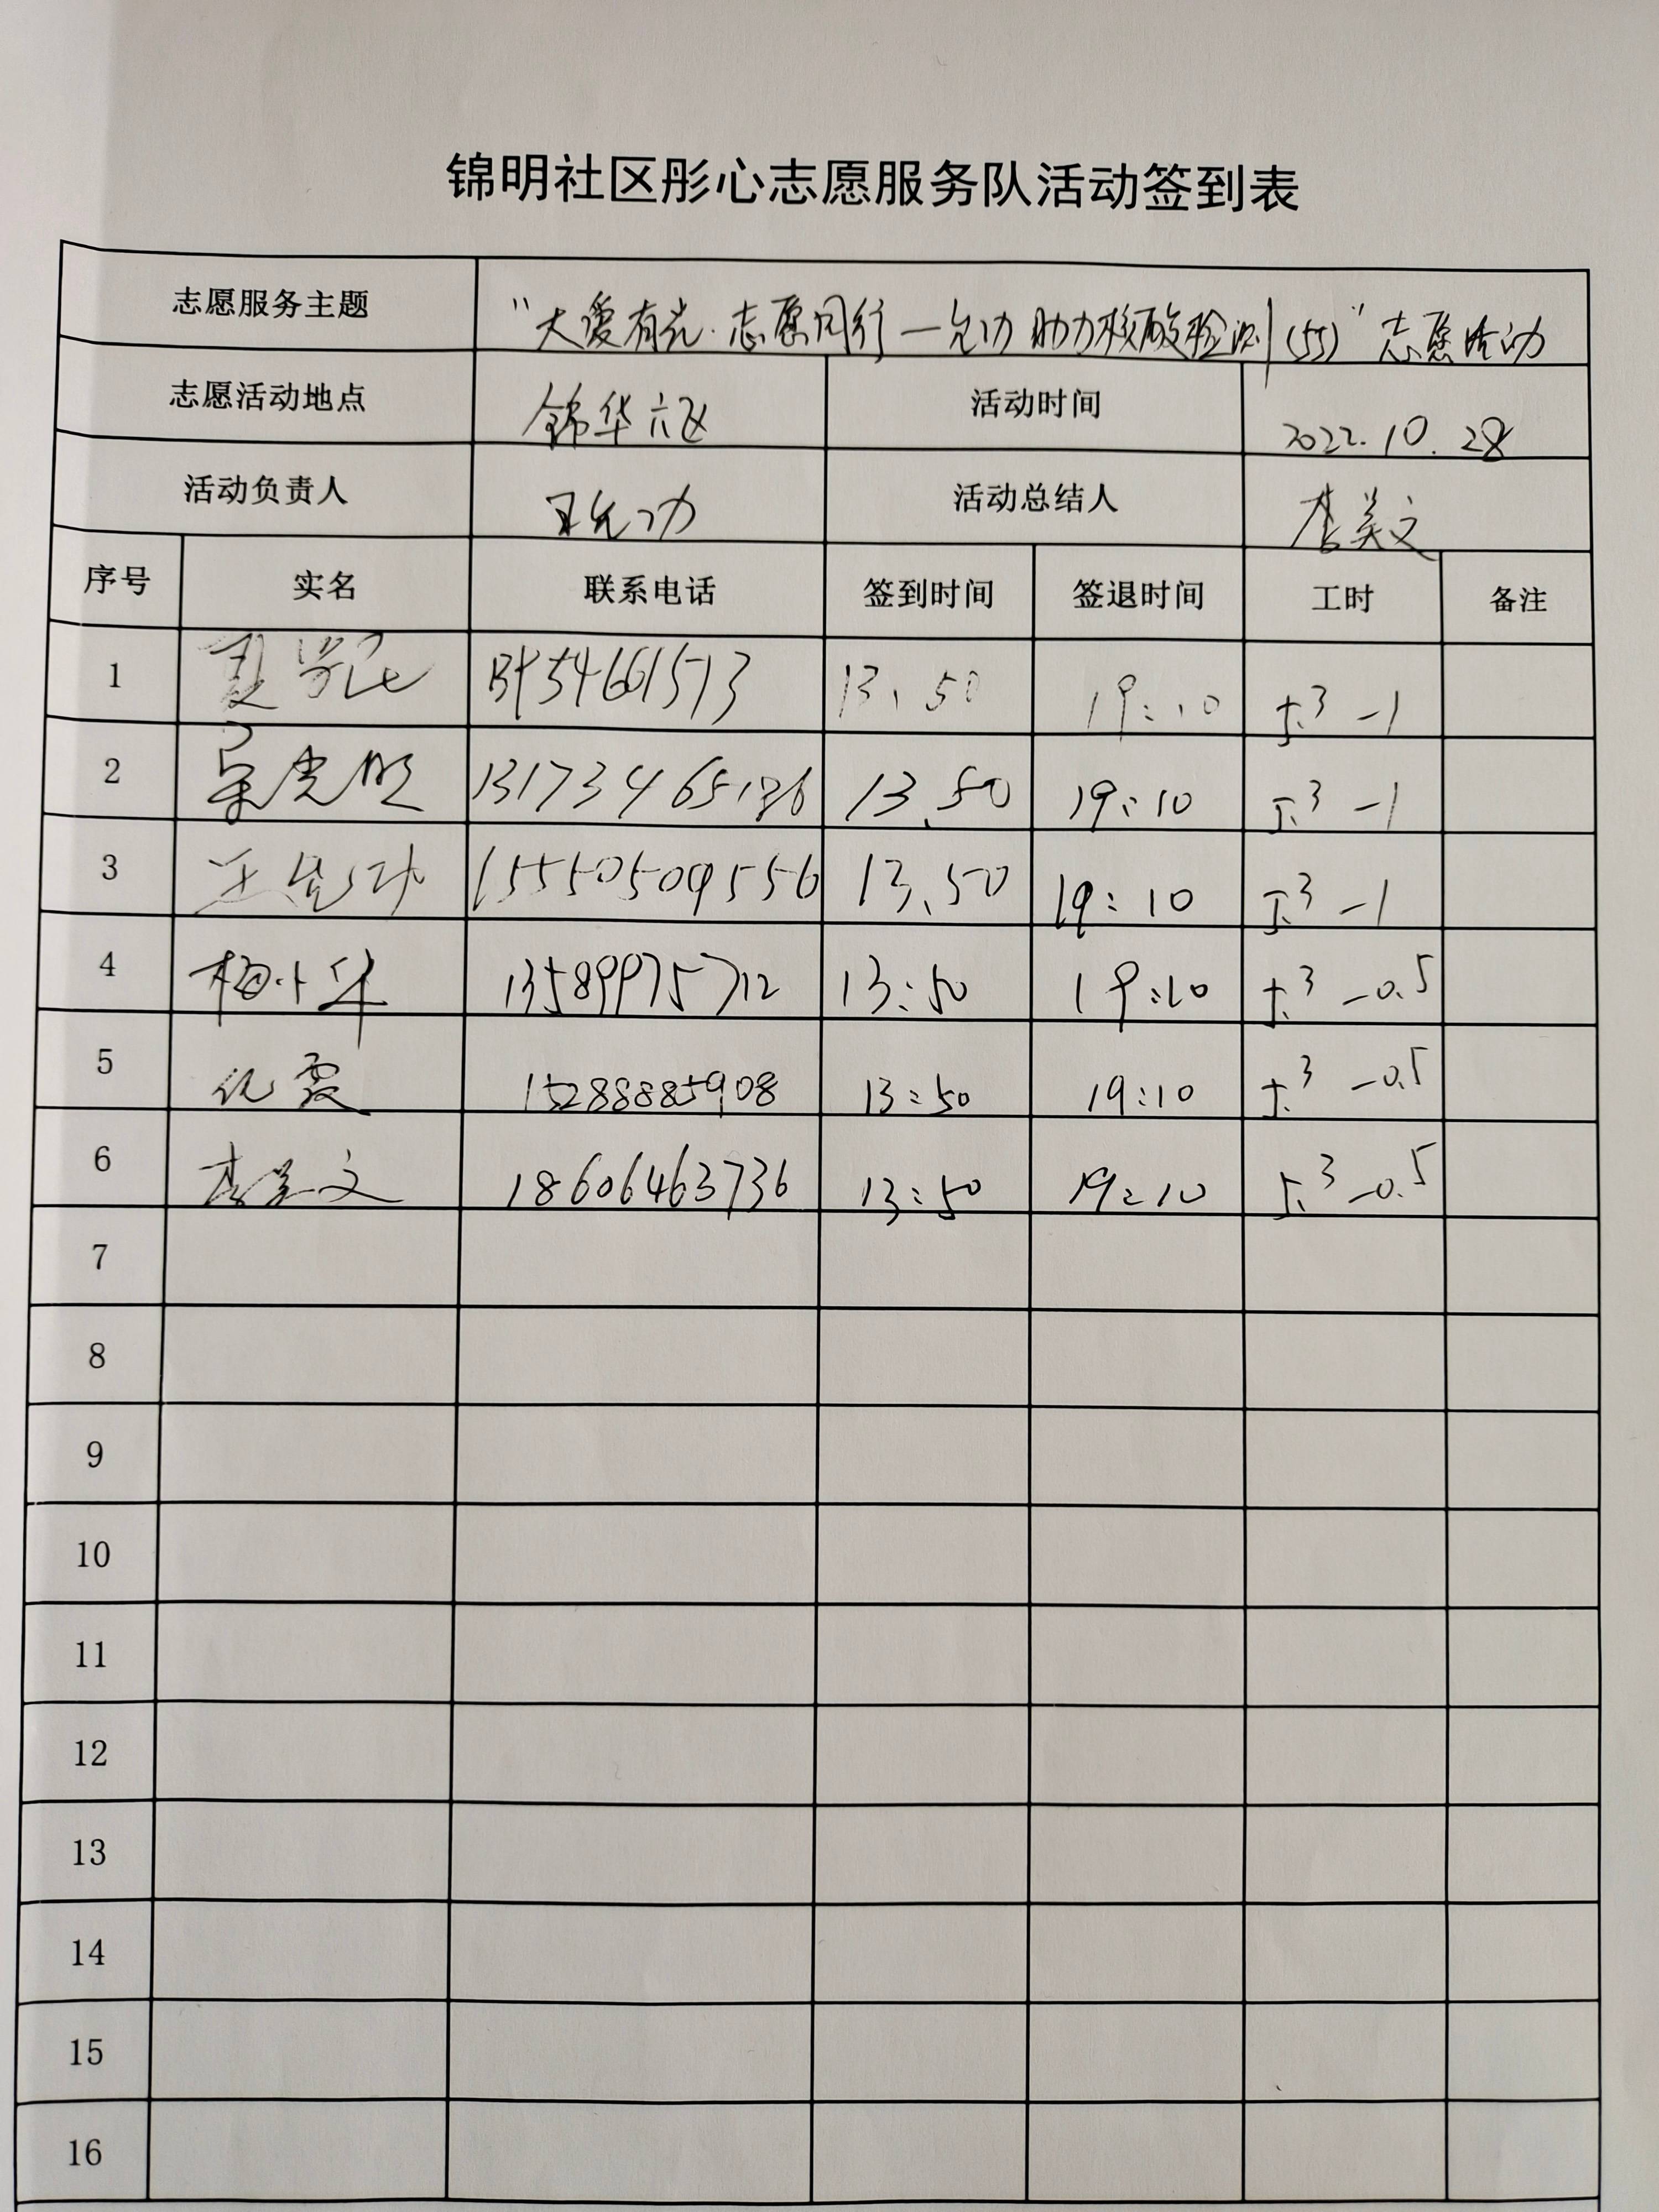 锦明社区彤心志愿服务队活动签到表
志愿服务主题 “大爱有光·志愿同行—允功助力核酸检测(55)”志愿活动
志愿活动地点 锦华六区 活动时间 2022.10.28
活动负责人 王允功 活动总结人 李美文
序号 实名 联系电话 签到时间 签退时间 工时 备注
1 13954661513 13:50 19:10 5.3 -1
2 13173465186 13.50 19:10 5.3 -1
3 王允功 15550509556 13.50 19:10 5.3 -1
4 梅小华 13589975712 13:50 19:10 5.3 -0.5
5 倪霞 15288885908 13:50 19:10 5.3 -0.5
6 李美文 18606463736 13:50 19:10 5.3 -0.5
7
8
9
10
11
12
13
14
15
16